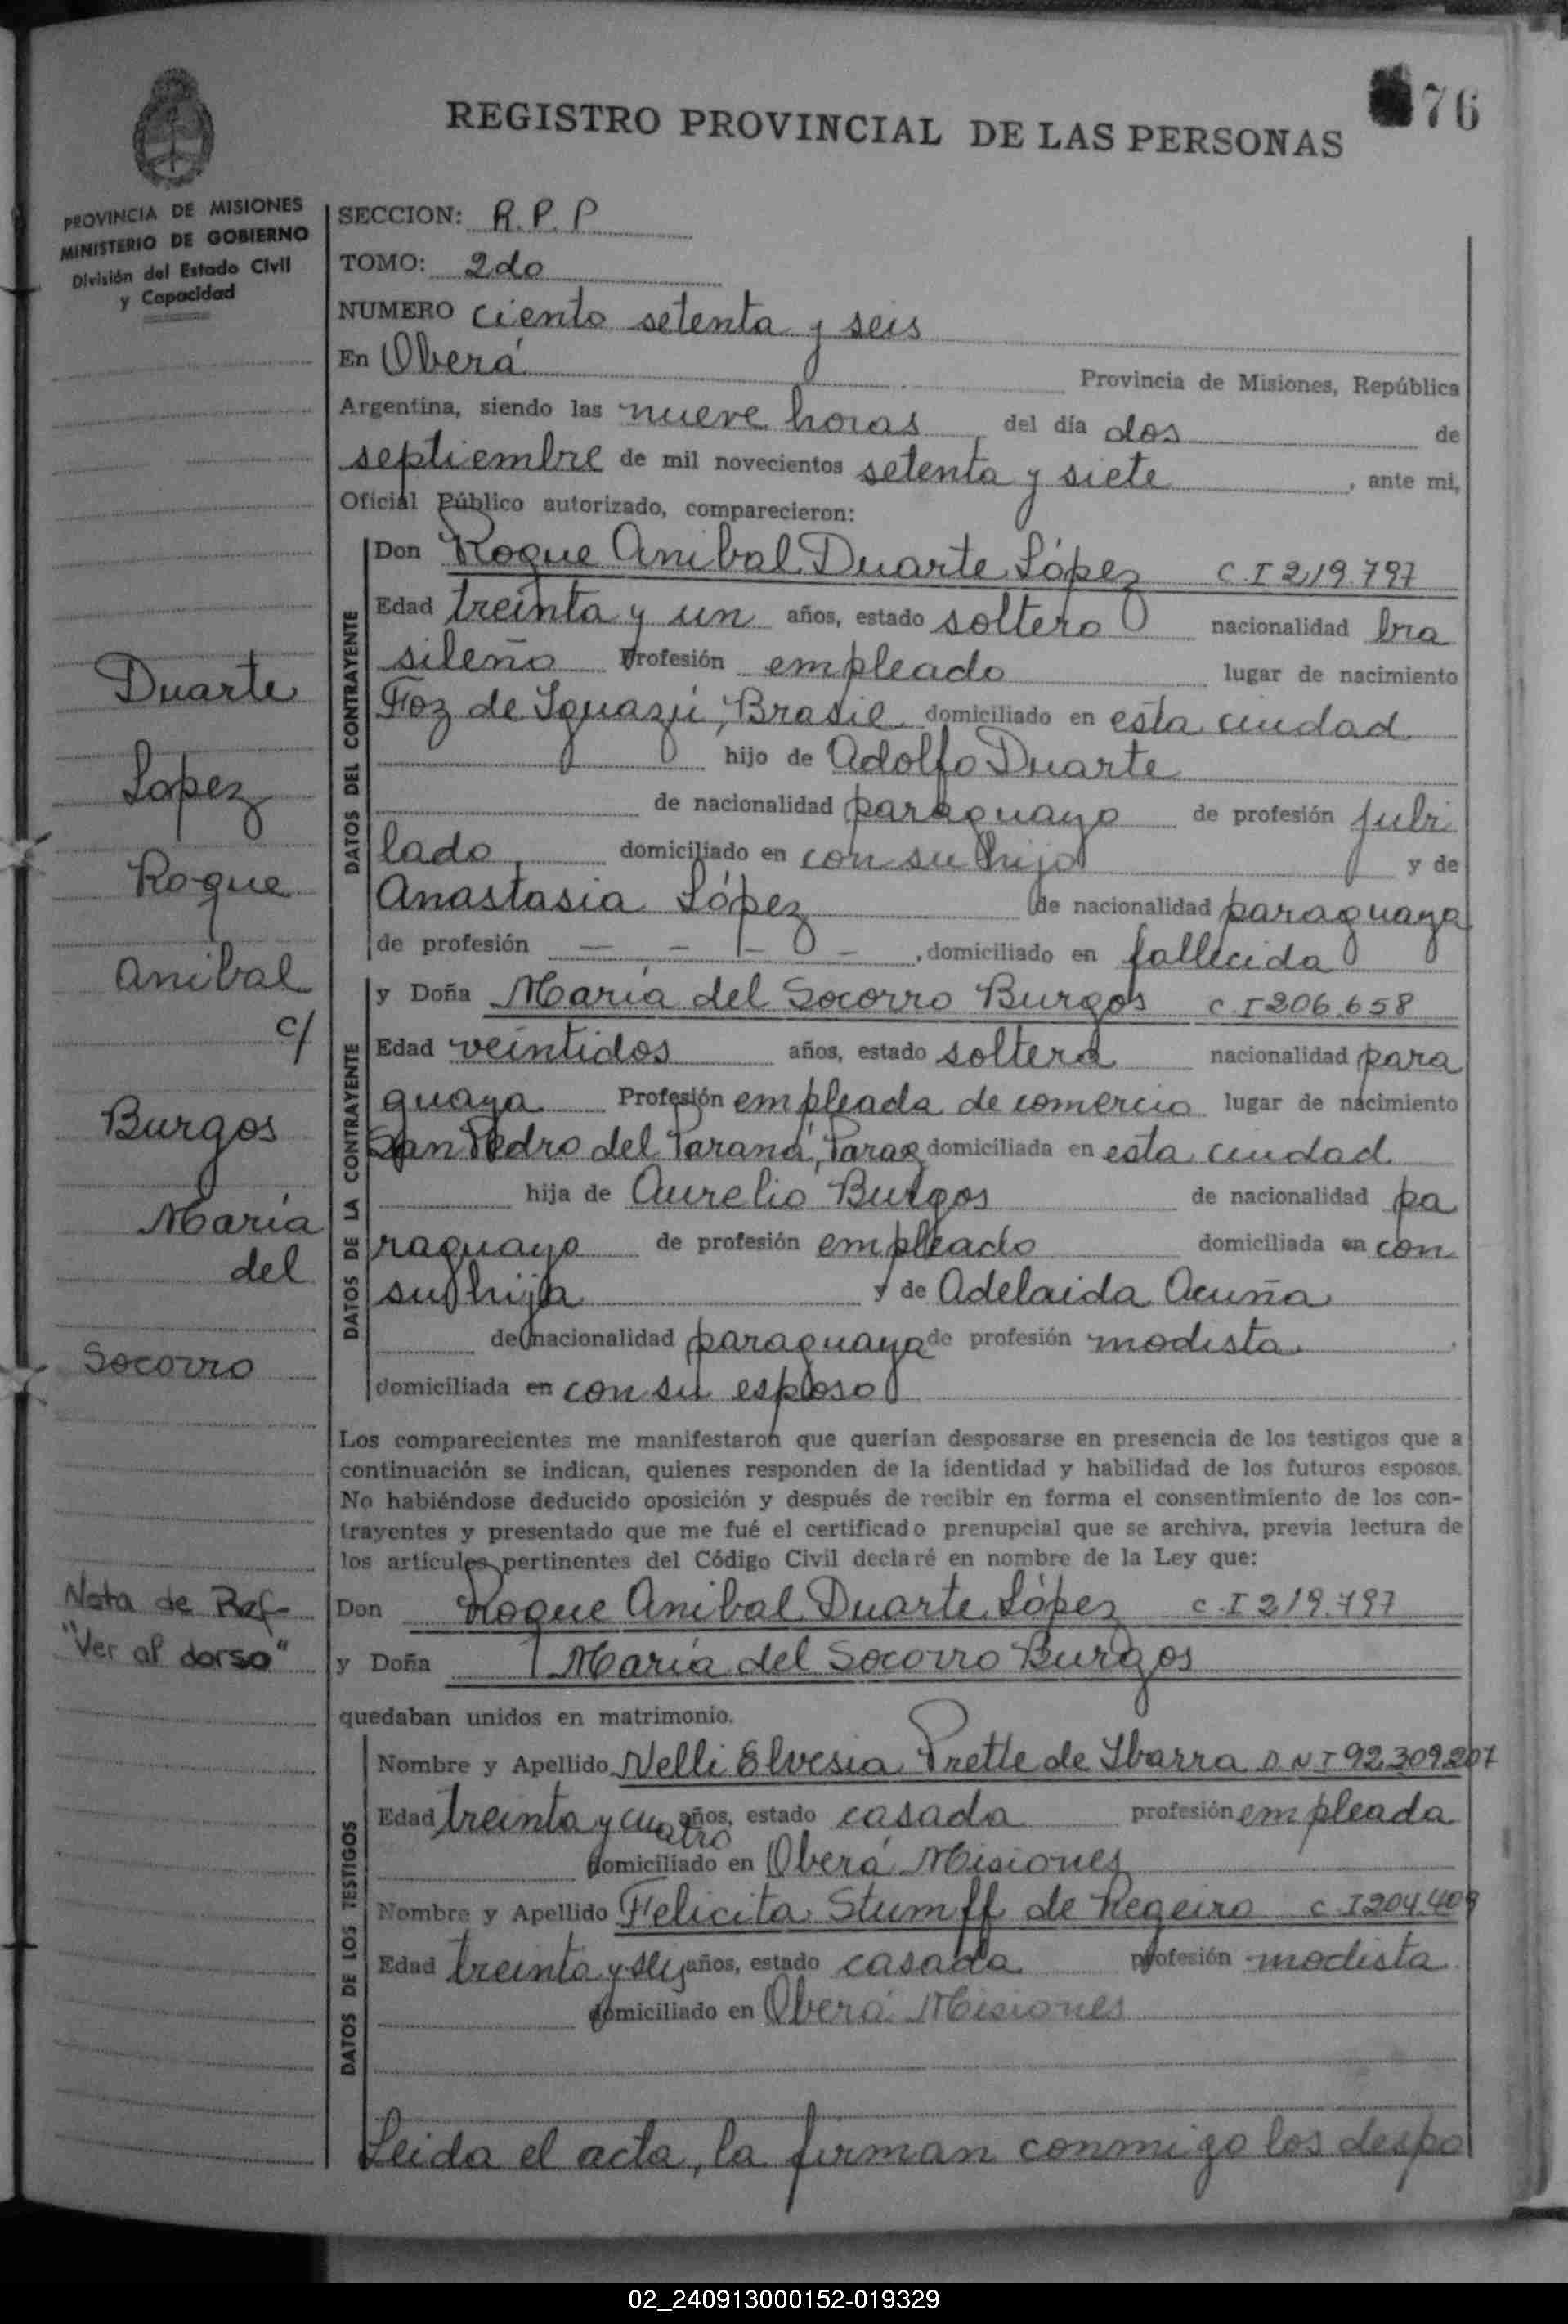 76
REGISTRO PROVINCIAL DE LAS PERSONAS
PROVINCIA DE MISIONES
MINISTERIO DE GOBIERNO
División del Estado Civil
y Capacidad
Duarte
Lopez
Roque
Anibal
c/
Burgos
María
del
Socorro
Nota de Ref-
"Ver al dorso"
SECCION: R.P.P
TOMO: 2do
NUMERO ciento setenta y seis
En Oberá Provincia de Misiones, República
Argentina, siendo las nueve horas, del día dos de
septiembre de mil novecientos setenta y siete, ante mi,
Oficial Público autorizado, comparecieron:
DATOS DEL CONTRAYENTE
Don Roque Anibal Duarte López C.I 219.797
Edad treinta y un años, estado soltero nacionalidad bra
sileño Profesión empleado lugar de nacimiento
Foz de Iguazú, Brasil domiciliado en esta ciudad
hijo de Adolfo Duarte
de nacionalidad paraguayo de profesión jubi
lado, domiciliado en con su hijo y de
Anastasia López de nacionalidad paraguaya
de profesión - - - - , domiciliado en fallecida
DATOS DE LA CONTRAYENTE
y Doña María del Socorro Burgos C.I 206.658
Edad veintidos años, estado soltera nacionalidad para
guaya Profesión empleada de comercio lugar de nacimiento
San Pedro del Paraná, Parag domiciliada en esta ciudad
hija de Aurelio Burgos de nacionalidad pa
raguayo de profesión empleado domiciliada en con
su hija y de Adelaida Acuña
de nacionalidad paraguaya de profesión modista
domiciliada en con su esposo
Los comparecientes me manifestaron que querían desposarse en presencia de los testigos que a
continuación se indican, quienes responden de la identidad y habilidad de los futuros esposos.
No habiéndose deducido oposición y después de recibir en forma el consentimiento de los con-
trayentes y presentado que me fué el certificado prenupcial que se archiva, previa lectura de
los artículos pertinentes del Código Civil declaré en nombre de la Ley que:
Don Roque Anibal Duarte López C.I 219.797
y Doña María del Socorro Burgos
quedaban unidos en matrimonio.
DATOS DE LOS TESTIGOS
Nombre y Apellido Nelli Elvesia Prette de Ibarra D.N.I 92.309.207
Edad treinta y cuatro años, estado casada profesión empleada
domiciliado en Oberá Misiones
Nombre y Apellido Felicita Stumff de Regeiro C.I 204.
Edad treinta y seis años, estado casada profesión modista
domiciliado en Oberá Misiones
Leida el acta, la firman conmigo los despo
02_240913000152-019329